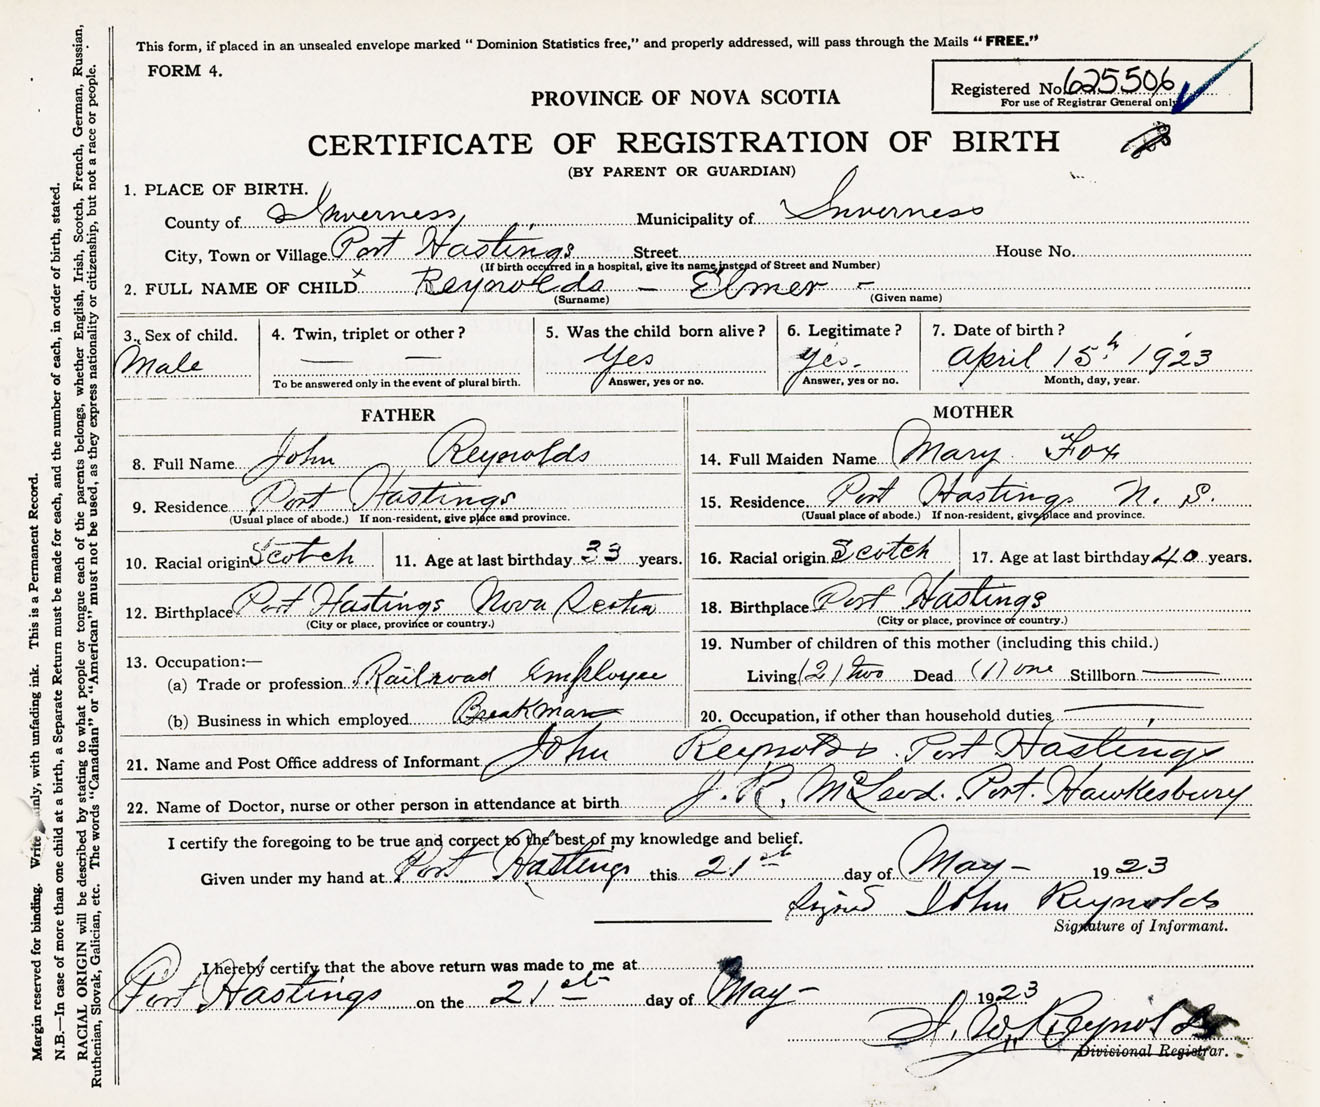 This form, if placed in an unsealed envelope marked "Dominion Statistics free," and properly addressed, will pass through the Mails "FREE."
FORM 4.
Registered No. 625506
For use of Registrar General only
PROVINCE OF NOVA SCOTIA
CERTIFICATE OF REGISTRATION OF BIRTH
(BY PARENT OR GUARDIAN)
1. PLACE OF BIRTH.
County of Inverness Municipality of Inverness
City, Town or Village Port Hastings Street House No.
(If birth occurred in a hospital, give its name instead of Street and Number)
2. FULL NAME OF CHILD x Reynolds - Elmer -
(Surname) (Given name)
3. Sex of child. 4. Twin, triplet or other? 5. Was the child born alive? 6. Legitimate? 7. Date of birth?
Male — — Yes Yes. April 15th 1923
To be answered only in the event of plural birth. Answer, yes or no. Answer, yes or no. Month, day, year.
FATHER
8. Full Name John Reynolds
9. Residence Port Hastings
(Usual place of abode.) If non-resident, give place and province.
10. Racial origin Scotch 11. Age at last birthday 33 years.
12. Birthplace Port Hastings Nova Scotia
(City or place, province or country.)
13. Occupation:—
(a) Trade or profession Railroad Employee
(b) Business in which employed Breakman
MOTHER
14. Full Maiden Name Mary Fox
15. Residence Port Hastings N. S.
(Usual place of abode.) If non-resident, give place and province.
16. Racial origin Scotch 17. Age at last birthday 40 years.
18. Birthplace Port Hastings
(City or place, province or country.)
19. Number of children of this mother (including this child.)
Living (2) two Dead (1) one Stillborn —
20. Occupation, if other than household duties —
21. Name and Post Office address of Informant John Reynolds. Port Hastings
22. Name of Doctor, nurse or other person in attendance at birth J. R. McLeod. Port Hawkesbury
I certify the foregoing to be true and correct to the best of my knowledge and belief.
Given under my hand at Port Hastings this 21st day of May - 1923
Signed John Reynolds
Signature of Informant.
I hereby certify that the above return was made to me at
Port Hastings on the 21st day of May - 1923
W. Reynolds
Divisional Registrar.
Margin reserved for binding. Write plainly, with unfading ink. This is a Permanent Record.
N.B.—In case of more than one child at a birth, a Separate Return must be made for each, and the number of each, in order of birth, stated.
RACIAL ORIGIN will be described by stating to what people or tongue each of the parents belongs, whether English, Irish, Scotch, French, German, Russian,
Ruthenian, Slovak, Galician, etc. The words "Canadian" or "American" must not be used, as they express nationality or citizenship, but not a race or people.